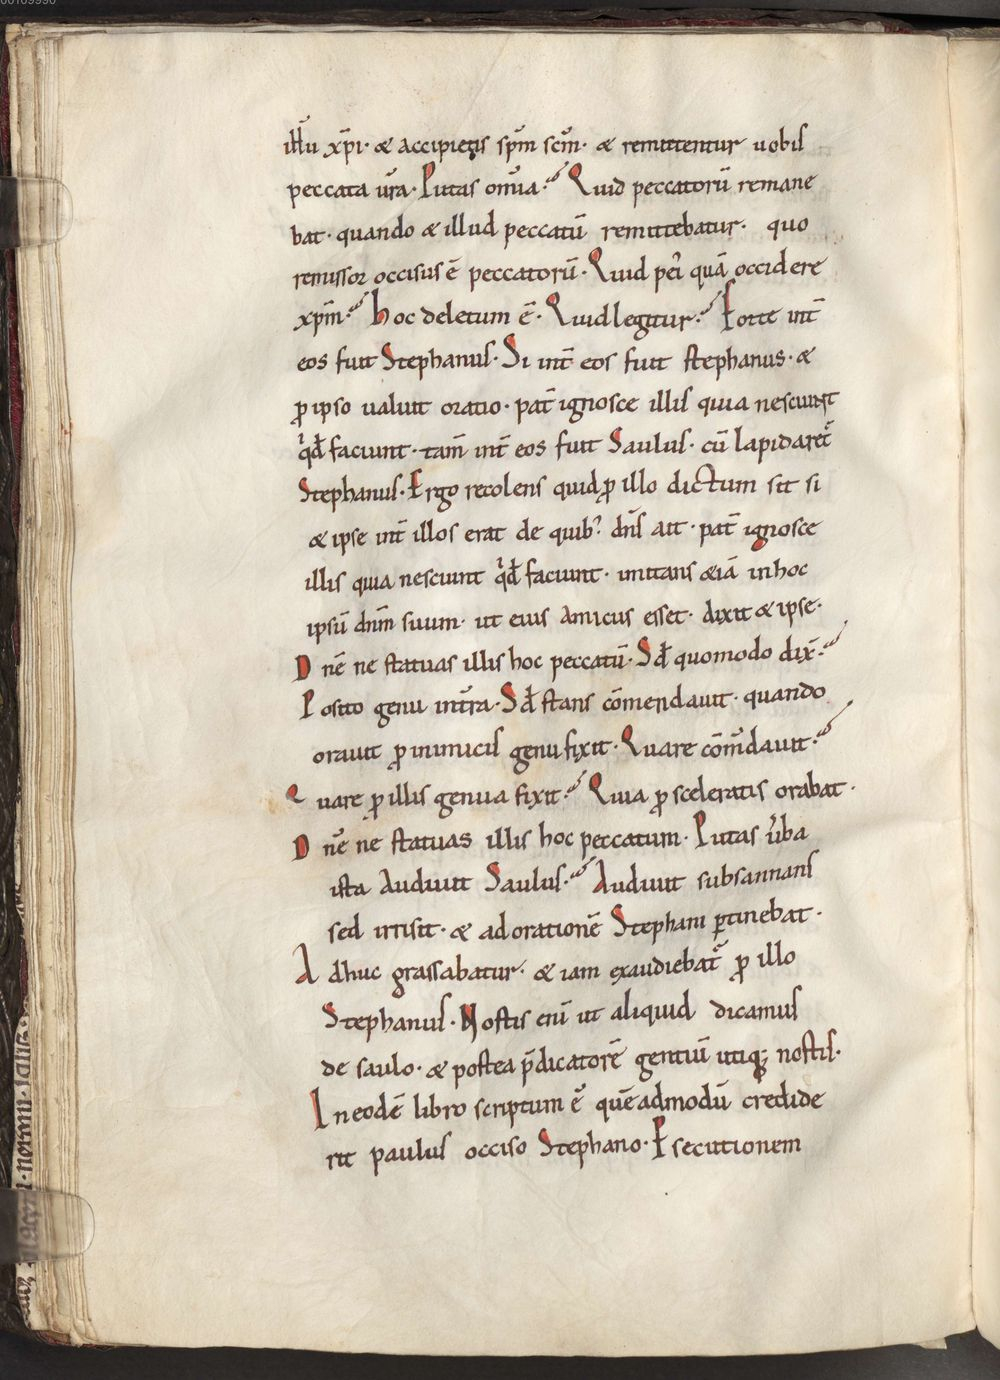 ihu xp̄i· & accipietis sp̄m sc̄m· & remittentur uobis
peccata ur̄a· Putas om̄ia· Quid peccatorū remane
bat· quando & illud peccatū remittebatur· quo
remissor occisus ē peccatorū· Quid pei' quā occidere
xp̄m· hoc deletum ē· Quid legitur· Forte int̄
eos fuit Stephanus· Si int̄ eos fuit stephanus· &
ꝓ ipso ualuit oratio· pat̄ ignosce illis quia nesciunt
qd̄ faciunt· tam̄ int̄ eos fuit Saulus· cū lapidaret̄
Stephanus· Ergo recolens quid ꝓ illo dictum sit si
& ipse int̄ illos erat de quib; dn̄s ait· pat̄ ignosce
illis quia nesciunt qd̄ faciunt· imitans &iā in hoc
ipsū dn̄m suum· ut eius amicus esset· dixit & ipse·
Dn̄e ne statuas illis hoc peccatū· Sd̄ quomodo dix̄·
Posito genu int̄ra· Sd̄ stans cōmendauit· quando
orauit ꝓ inimicis genu fixit· Quare cōm̄dauit·
Quare ꝓ illis genua fixit· Quia ꝓ sceleratis orabat·
Dn̄e ne statuas illis hoc peccatum· Putas ūba
ista Audiuit Saulus· Audiuit subsannans
sed irrisit· & ad orationē Stephani ꝑtinebat·
Adhuc grassabatur· & iam exaudiebat̄ ꝓ illo
Stephanus· Nostis enī ut aliquid dicamus
de saulo· & postea p̄dicatorē gentiū utiq; nostis·
In eodē libro scriptum ē quēadmodū credide
rit paulus occiso Stephano· Psecutionem